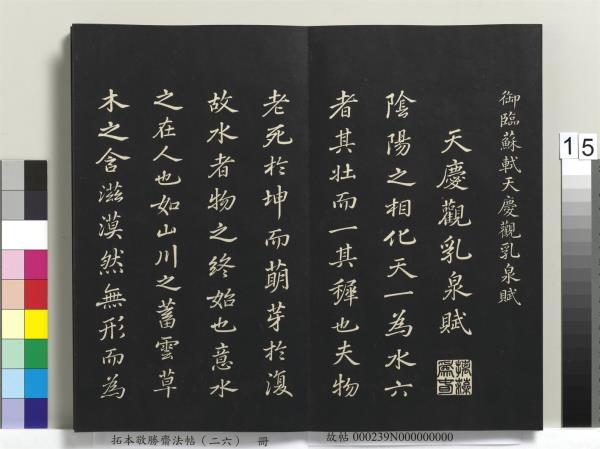 御臨蘇軾天慶觀乳泉賦
天慶觀乳泉賦
陰陽之相化天一為水六
者其壯而一其穉也夫物
老死於坤而萌芽於復
故水者物之終始也意水
之在人也如山川之蓄雲草
木之含滋漠然無形而為
15
拓本敬勝齋法帖(二六) 冊
故帖 000239N000000000